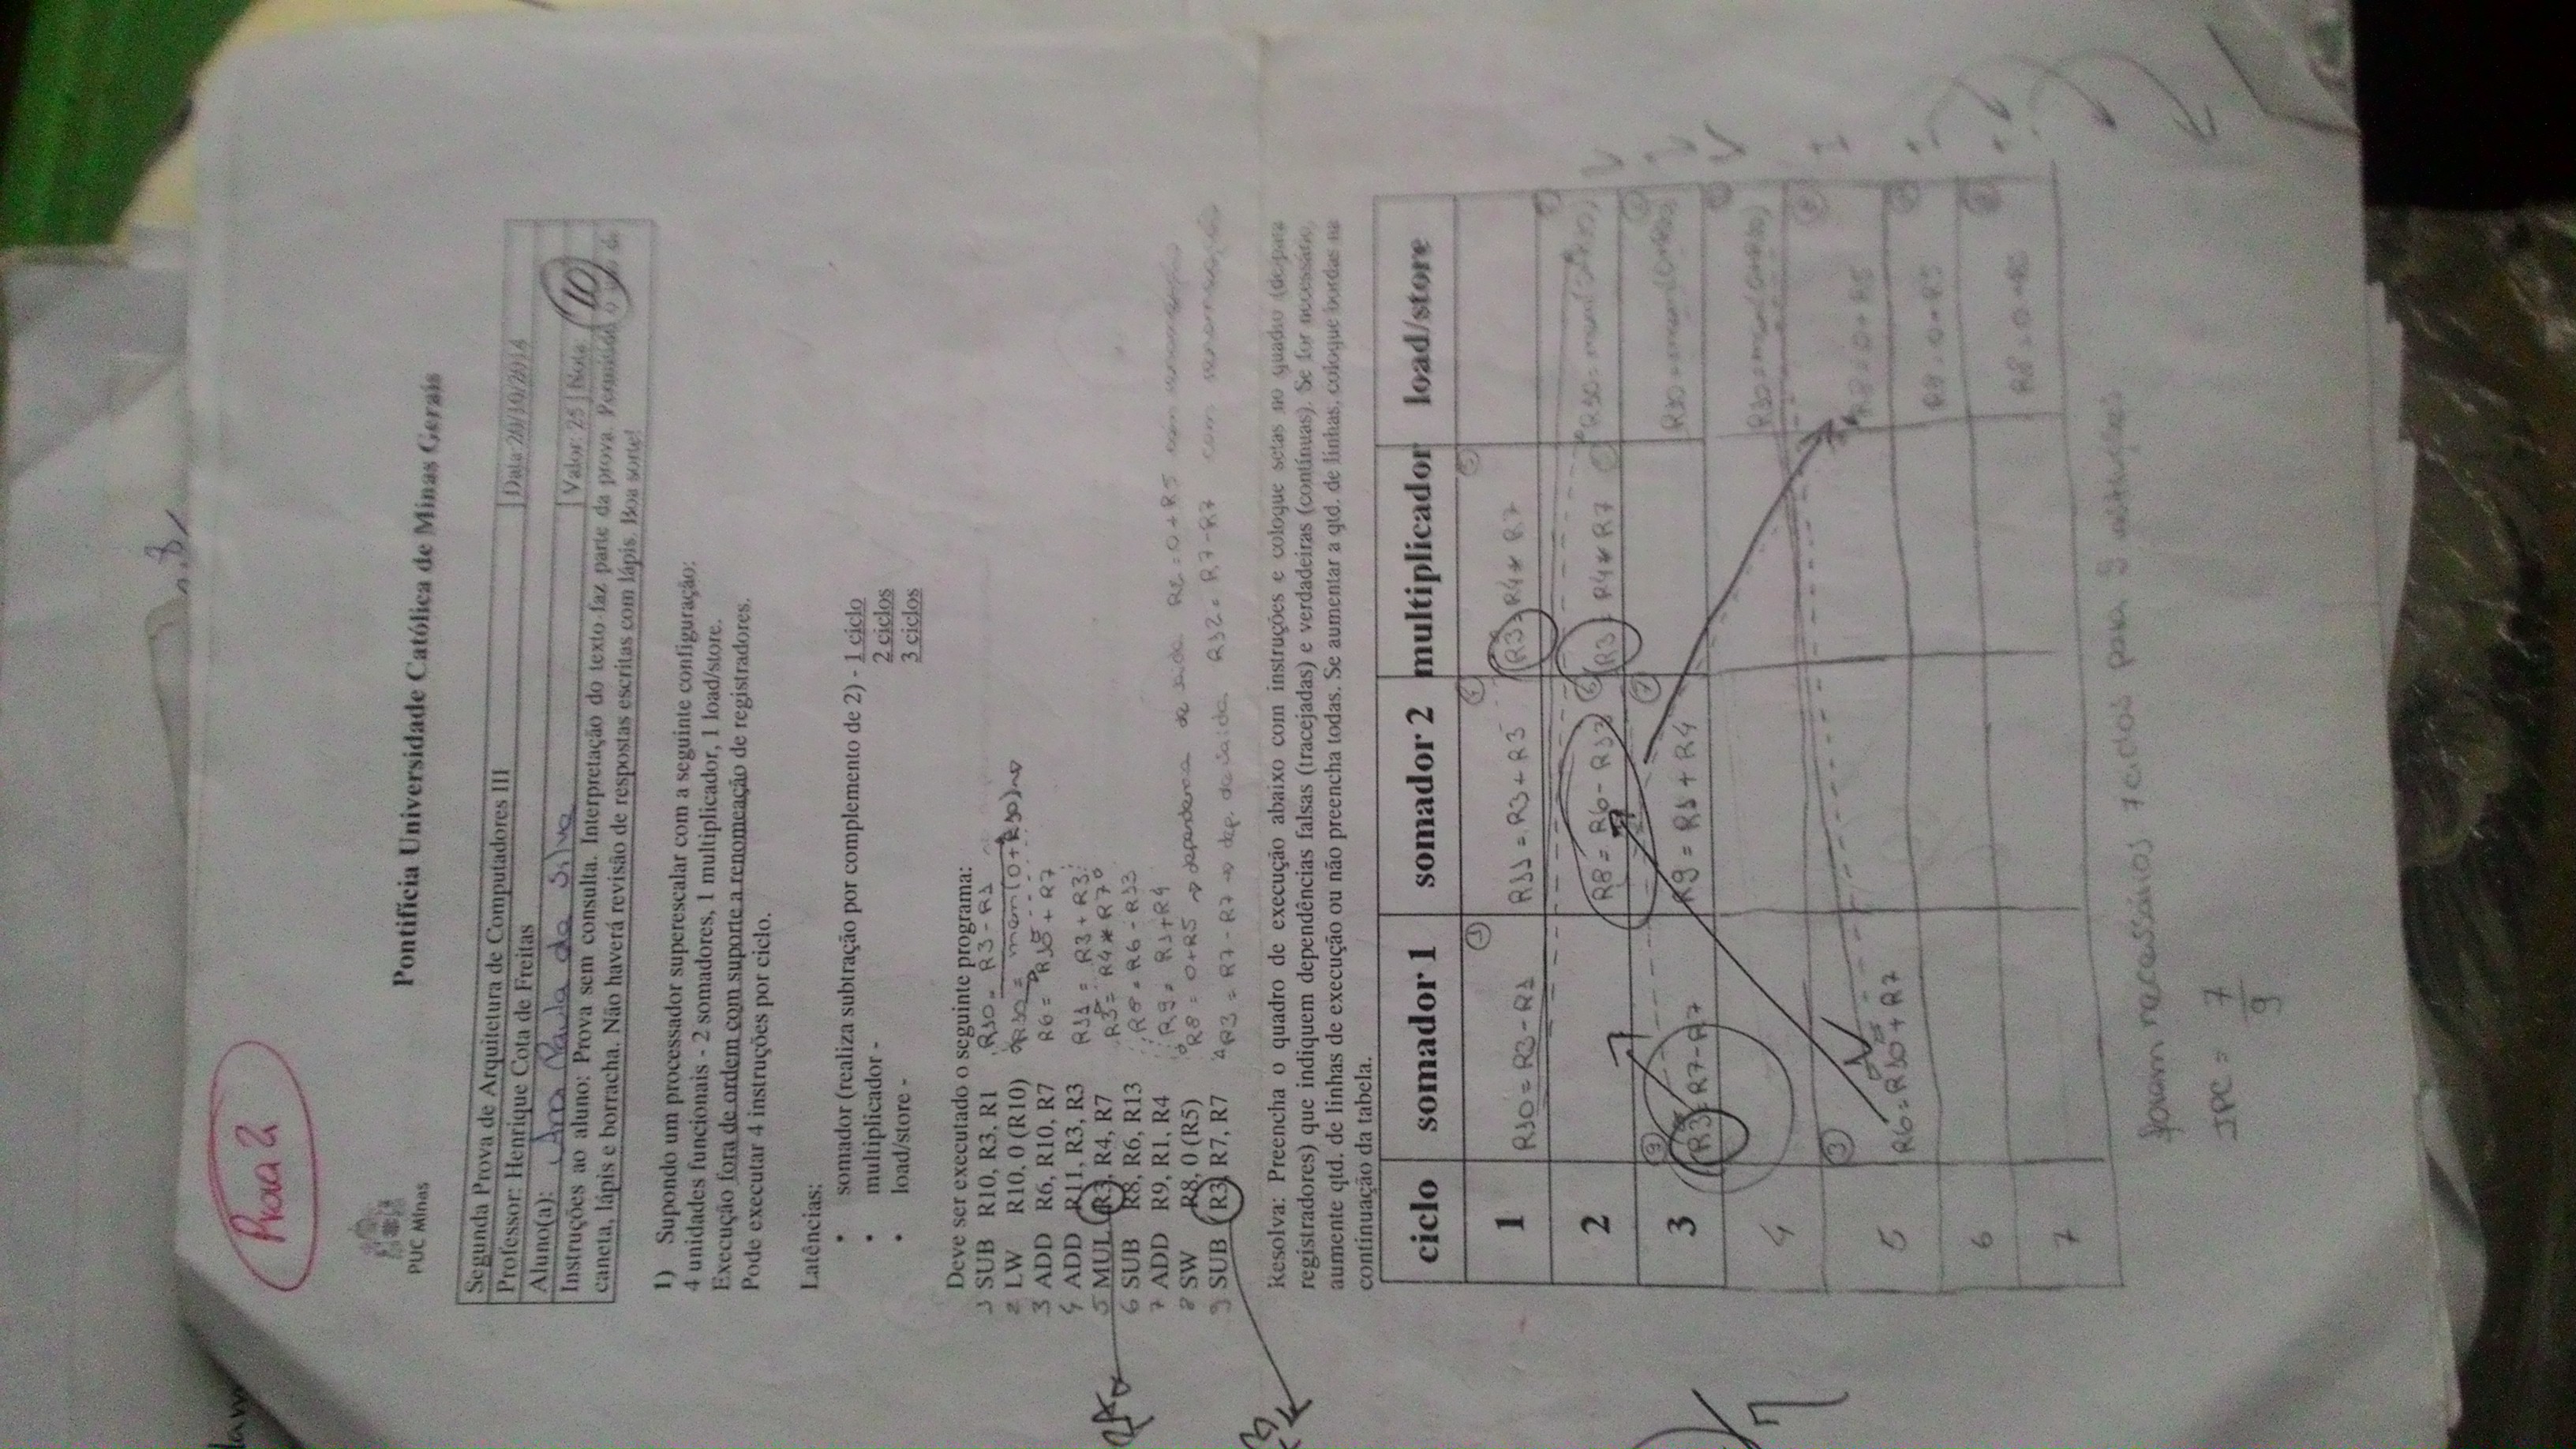 Prova 2
PUC Minas
Pontifícia Universidade Católica de Minas Gerais
Segunda Prova de Arquitetura de Computadores III
Data 20/10/2014
Professor: Henrique Cota de Freitas
Aluno(a): Ana Paula da Silva
Valor: 25 Nota: 10
Instruções ao aluno: Prova sem consulta. Interpretação do texto faz parte da prova. Permitido o uso de
caneta, lápis e borracha. Não haverá revisão de respostas escritas com lápis. Boa sorte!
1) Supondo um processador superescalar com a seguinte configuração:
4 unidades funcionais - 2 somadores, 1 multiplicador, 1 load/store.
Execução fora de ordem com suporte a renomeação de registradores.
Pode executar 4 instruções por ciclo.
Latências:
• somador (realiza subtração por complemento de 2) - 1 ciclo
• multiplicador - 2 ciclos
• load/store - 3 ciclos
Deve ser executado o seguinte programa:
1 SUB R10, R3, R1 R10 = R3 - R1
2 LW R10, 0 (R10) R10 = mem(0+R10)
3 ADD R6, R10, R7 R6 = R10 + R7
4 ADD R11, R3, R3 R11 = R3 + R3
5 MUL R3, R4, R7 R3 = R4 * R7
6 SUB R8, R6, R13 R8 = R6 - R13
7 ADD R9, R1, R4 R9 = R1+R4
8 SW R8, 0 (R5) R8 = 0+R5 → dependencia de saida
9 SUB R3, R7, R7 R3 = R7 - R7 → dep. de saida R12 = R7-R7 com renomeação
Resolva: Preencha o quadro de execução abaixo com instruções e coloque setas no quadro (de/para
registradores) que indiquem dependências falsas (tracejadas) e verdadeiras (contínuas). Se for necessário,
aumente qtd. de linhas de execução ou não preencha todas. Se aumentar a qtd. de linhas, coloque bordas na
continuação da tabela.
ciclo somador 1 somador 2 multiplicador load/store
1 R10 = R3 - R1 R11 = R3 + R3 R3 = R4 * R7
2 R8 = R6 - R13 R3 = R4 * R7 R10 = mem(0+R10)
3 R3 = R7 - R7 R9 = R1 + R4 R10 = mem(0+R10)
4 R10 = mem(0+R10)
5 R6 = R10 + R7 R8 = 0 + R5
6 R8 = 0 + R5
7 R8 = 0 + R5
foram necessários 7 ciclos para 9 instruções
IPC = 7
9